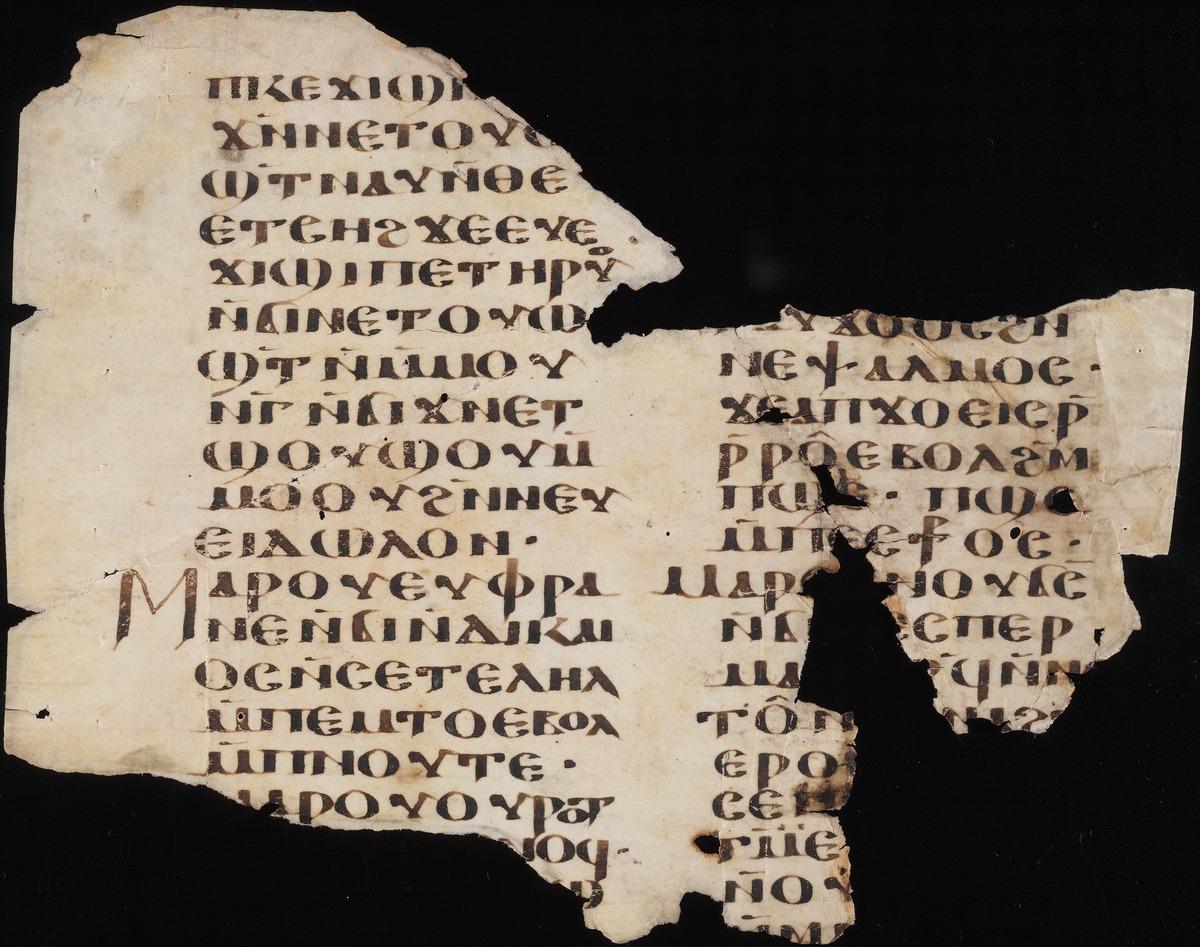 ⲡⲕⲉϫⲓϣ
ϫⲛ̄ⲛⲉⲧⲟⲩ
ϣⲧⲛⲁⲩⲛ̄ⲑⲉ
ⲉⲧⲥⲏϩϫⲉⲉⲩⲉ
ϫⲓϣⲓⲡⲉⲧⲏⲣⲟⲩ
ⲛ̄ϭⲓⲛⲉⲧⲟⲩⲱ
ϣⲧⲛ̄ⲙ̄ⲙⲟⲩ
ⲛⲅ̄ ⲛ̄ϭⲓϫⲛⲉⲧ
ϣⲟⲩϣⲟⲩⲙ̄
ⲙⲟⲟⲩϩⲛ̄ⲛⲉⲩ
ⲉⲓⲇⲱⲗⲟⲛ·
ⲙⲁⲣⲟⲩⲉⲩⲫⲣⲁ
ⲛⲉⲛ̄ϭⲓⲛ̄ⲇⲓⲕⲁⲓ
ⲟⲥⲛ̄ⲥⲉⲧⲉⲗⲏⲗ
ⲙ̄ⲡⲉⲙⲧⲟⲉⲃⲟⲗ
ⲙ̄ⲡⲛⲟⲩⲧⲉ·
ⲙⲁⲣⲟⲩⲟⲩⲣⲟⲧ
ⲛⲟϥ·
ⲩϫⲟⲟⲥϩⲛ
ⲛⲉⲯⲁⲗⲙⲟⲥ·
ϫⲉⲁⲡϫⲟⲉⲓⲥⲣ̄
ⲣ̄ⲣⲟ̂ⲉⲃⲟⲗϩⲙ̄
ⲡϣⲉ· ⲡϣⲉ
ⲙ̄ⲡⲉⲥϯⲟⲥ·
ⲙⲁⲣ ⲛⲟⲩϭⲥ̄
ⲛ̄ϭ ⲥⲡⲉⲣ
ⲙⲁ ϥⲛ̄ⲛ
ⲧⲟ̂ⲛ
ⲉⲣⲟ
ⲥⲉ
ⲅⲙ̄ⲉ
ⲛ̄ⲟⲩ